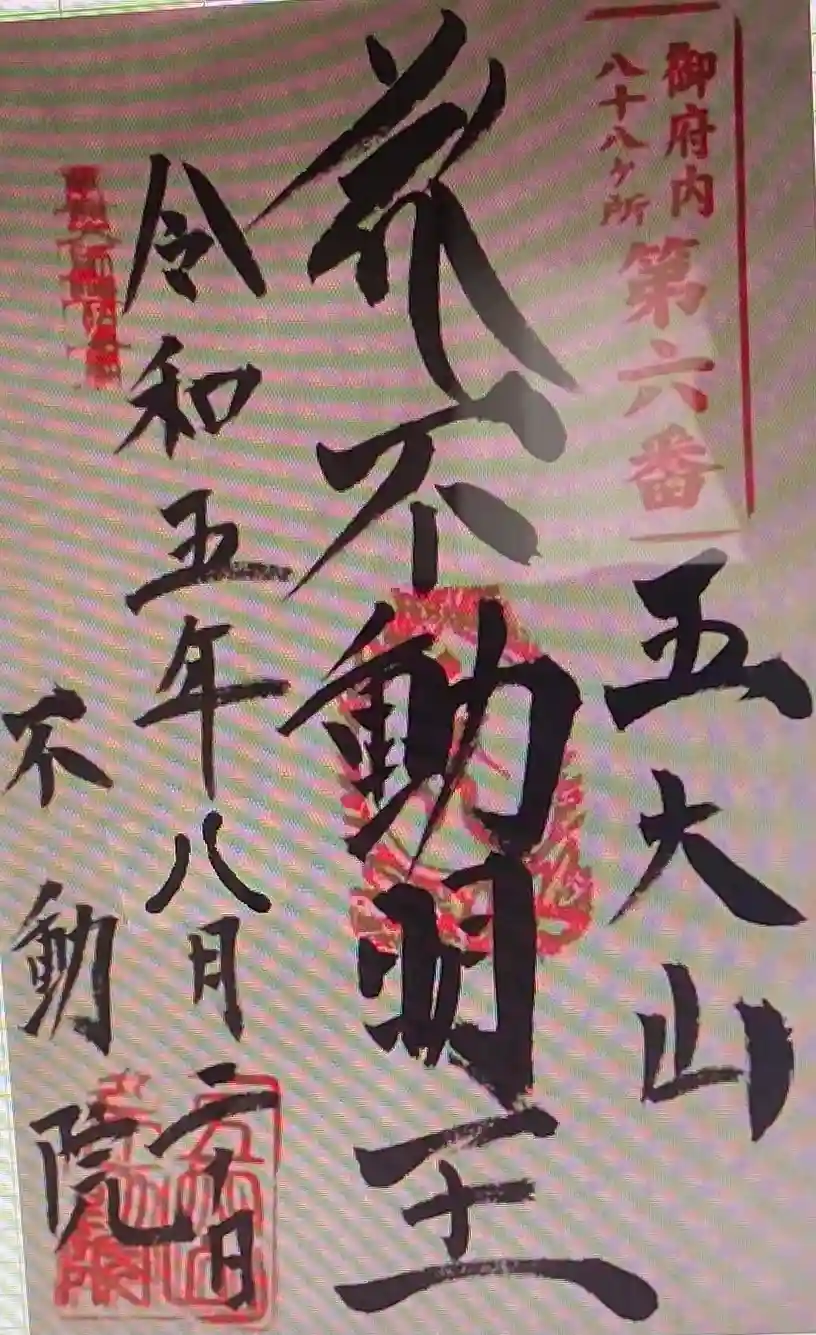 御府内
八十八ヶ所
第六番
五大山
花不動明王
令和五年八月二十日
不動院